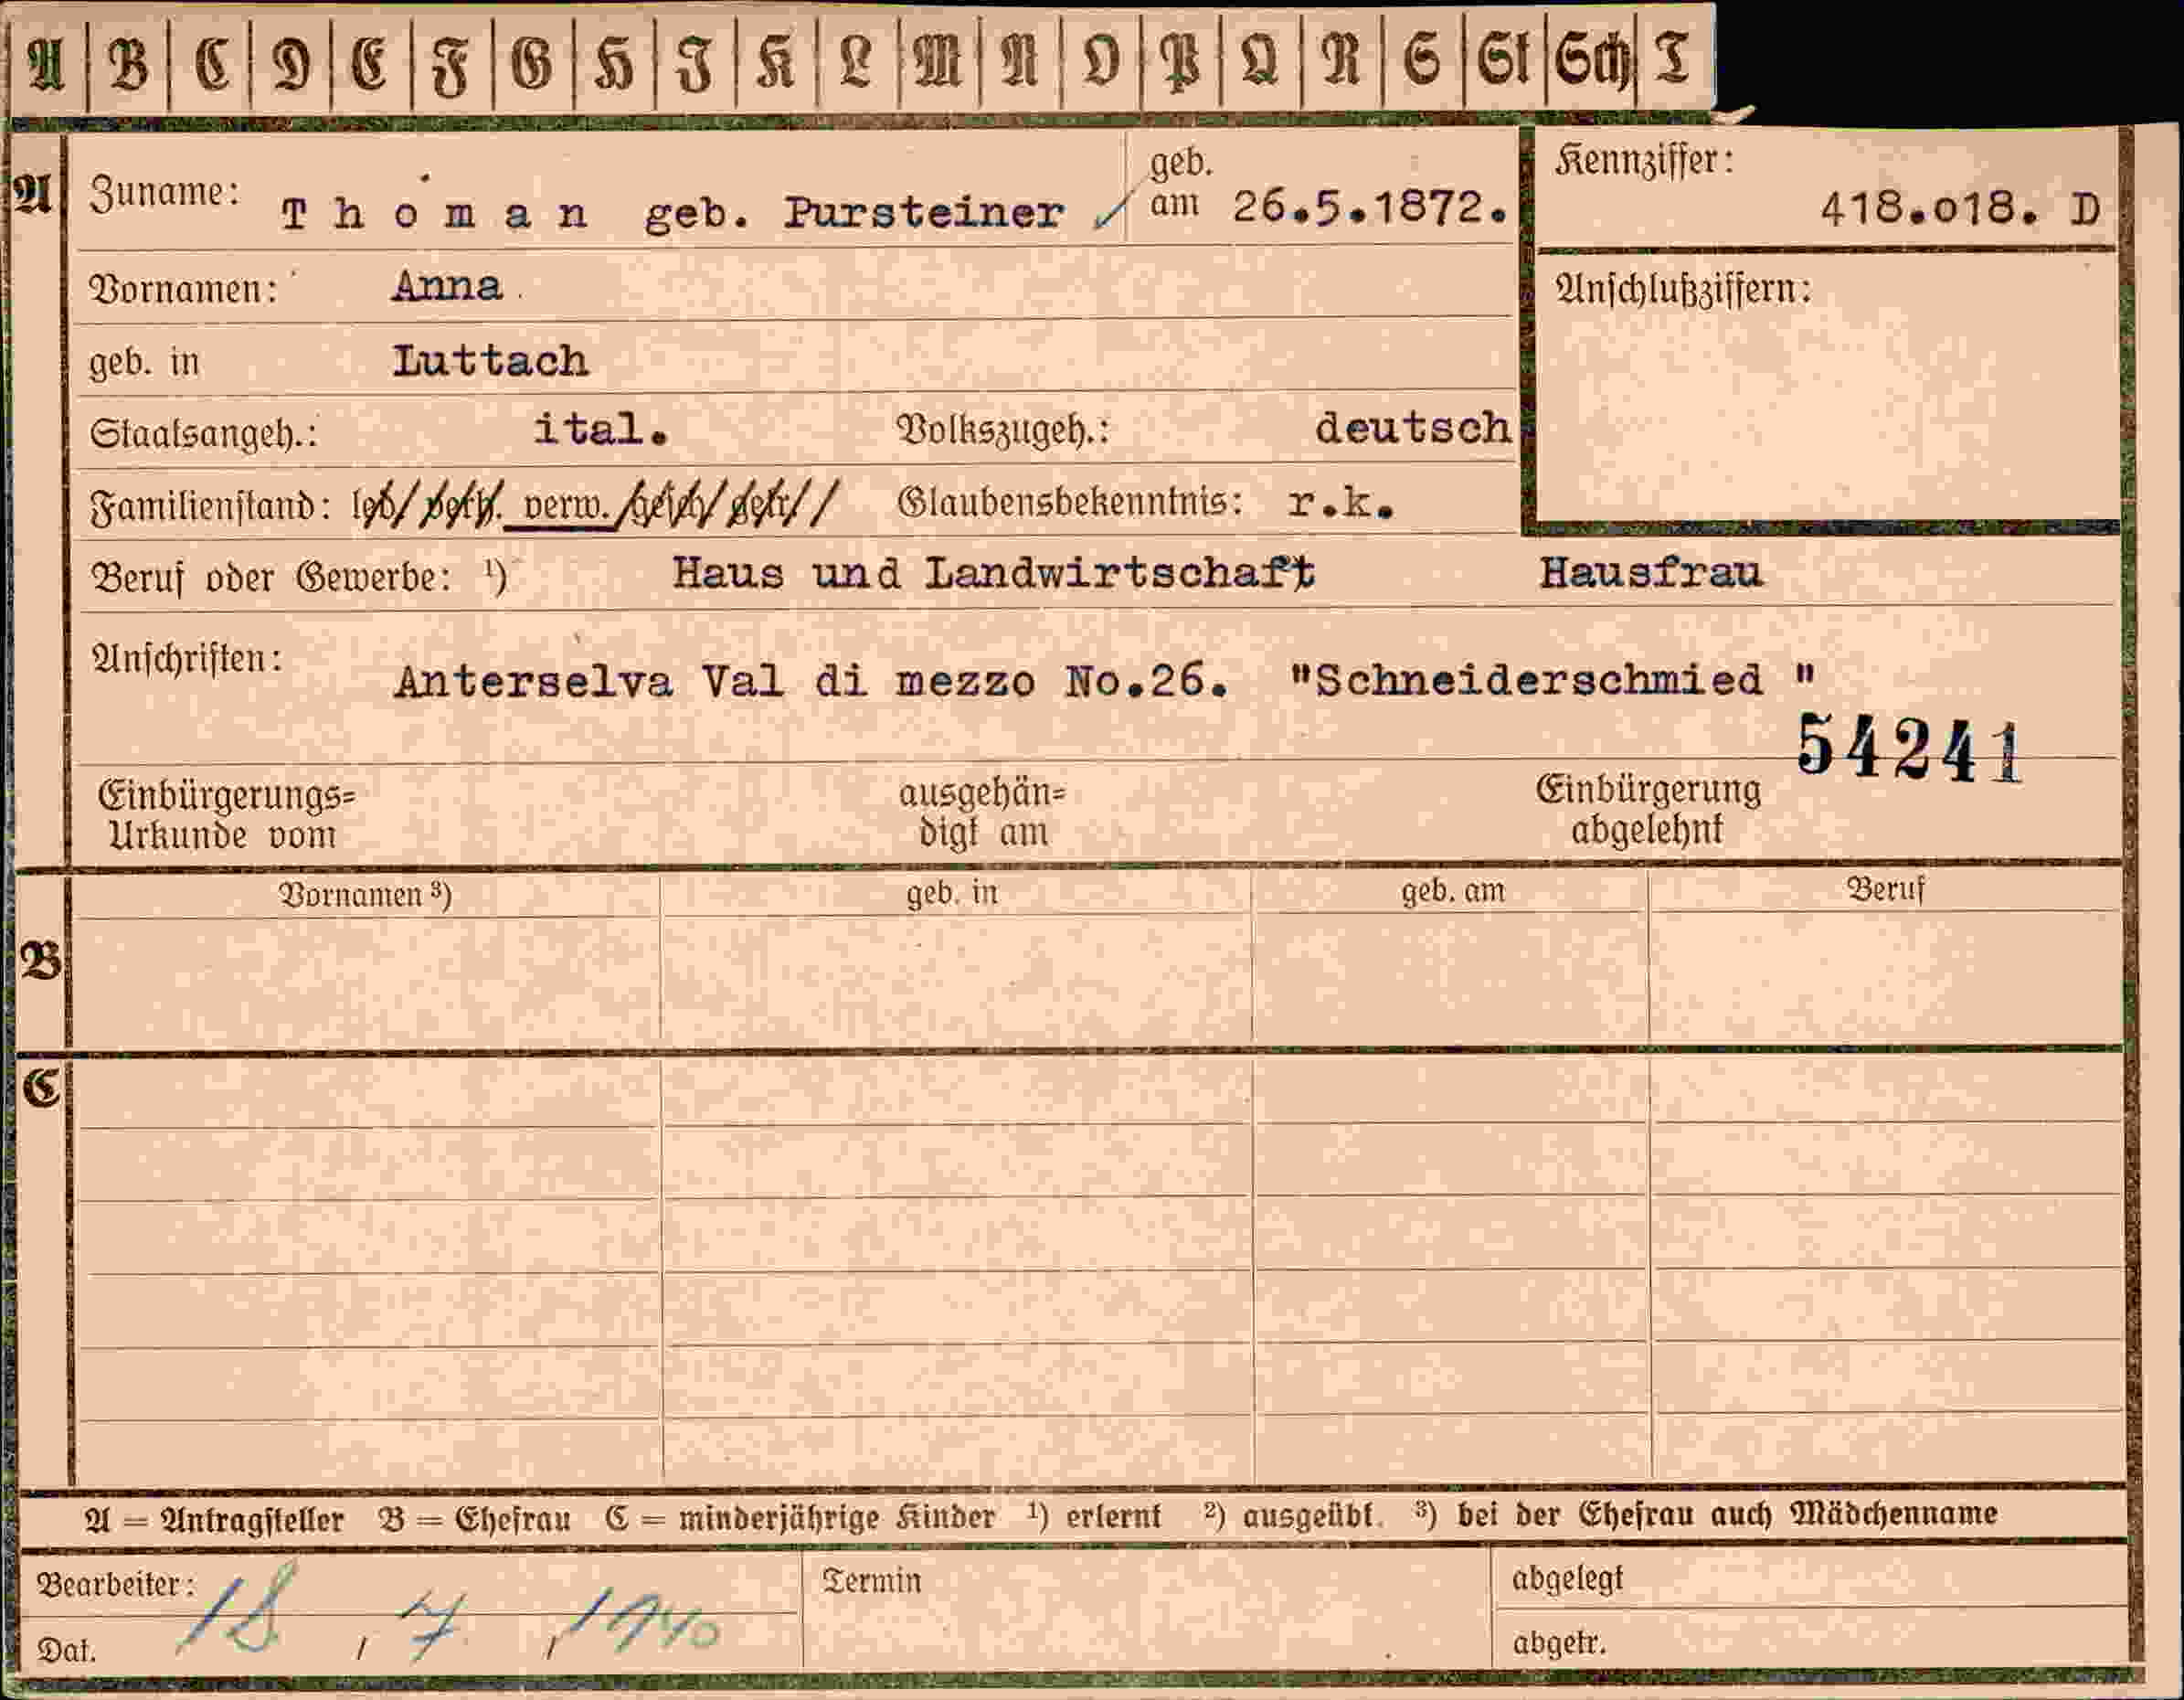 A B C D E F G H I K L M N O P Q R S St Sch T
A Zuname: T h o m a n geb. Pursteiner geb. am 26.5.1872. Kennziffer: 418.o18. D
Vornamen: Anna Anschlußziffern:
geb. in Luttach
Staatsangeh.: ital. Volkszugeh.: deutsch
Familienstand: led. verh. verw. gesch. getr. Glaubensbekenntnis: r.k.
Beruf oder Gewerbe: ¹) Haus und Landwirtschaft Hausfrau
Anschriften: Anterselva Val di mezzo No.26. "Schneiderschmied "
54241
Einbürgerungs= ausgehän= Einbürgerung
Urkunde vom digt am abgelehnt
Vornamen ³) geb. in geb. am Beruf
B
C
A = Antragsteller B = Ehefrau C = minderjährige Kinder ¹) erlernt ²) ausgeübt. ³) bei der Ehefrau auch Mädchenname
Bearbeiter: Termin abgelegt
18, 7, 1940
Dat. abgetr.